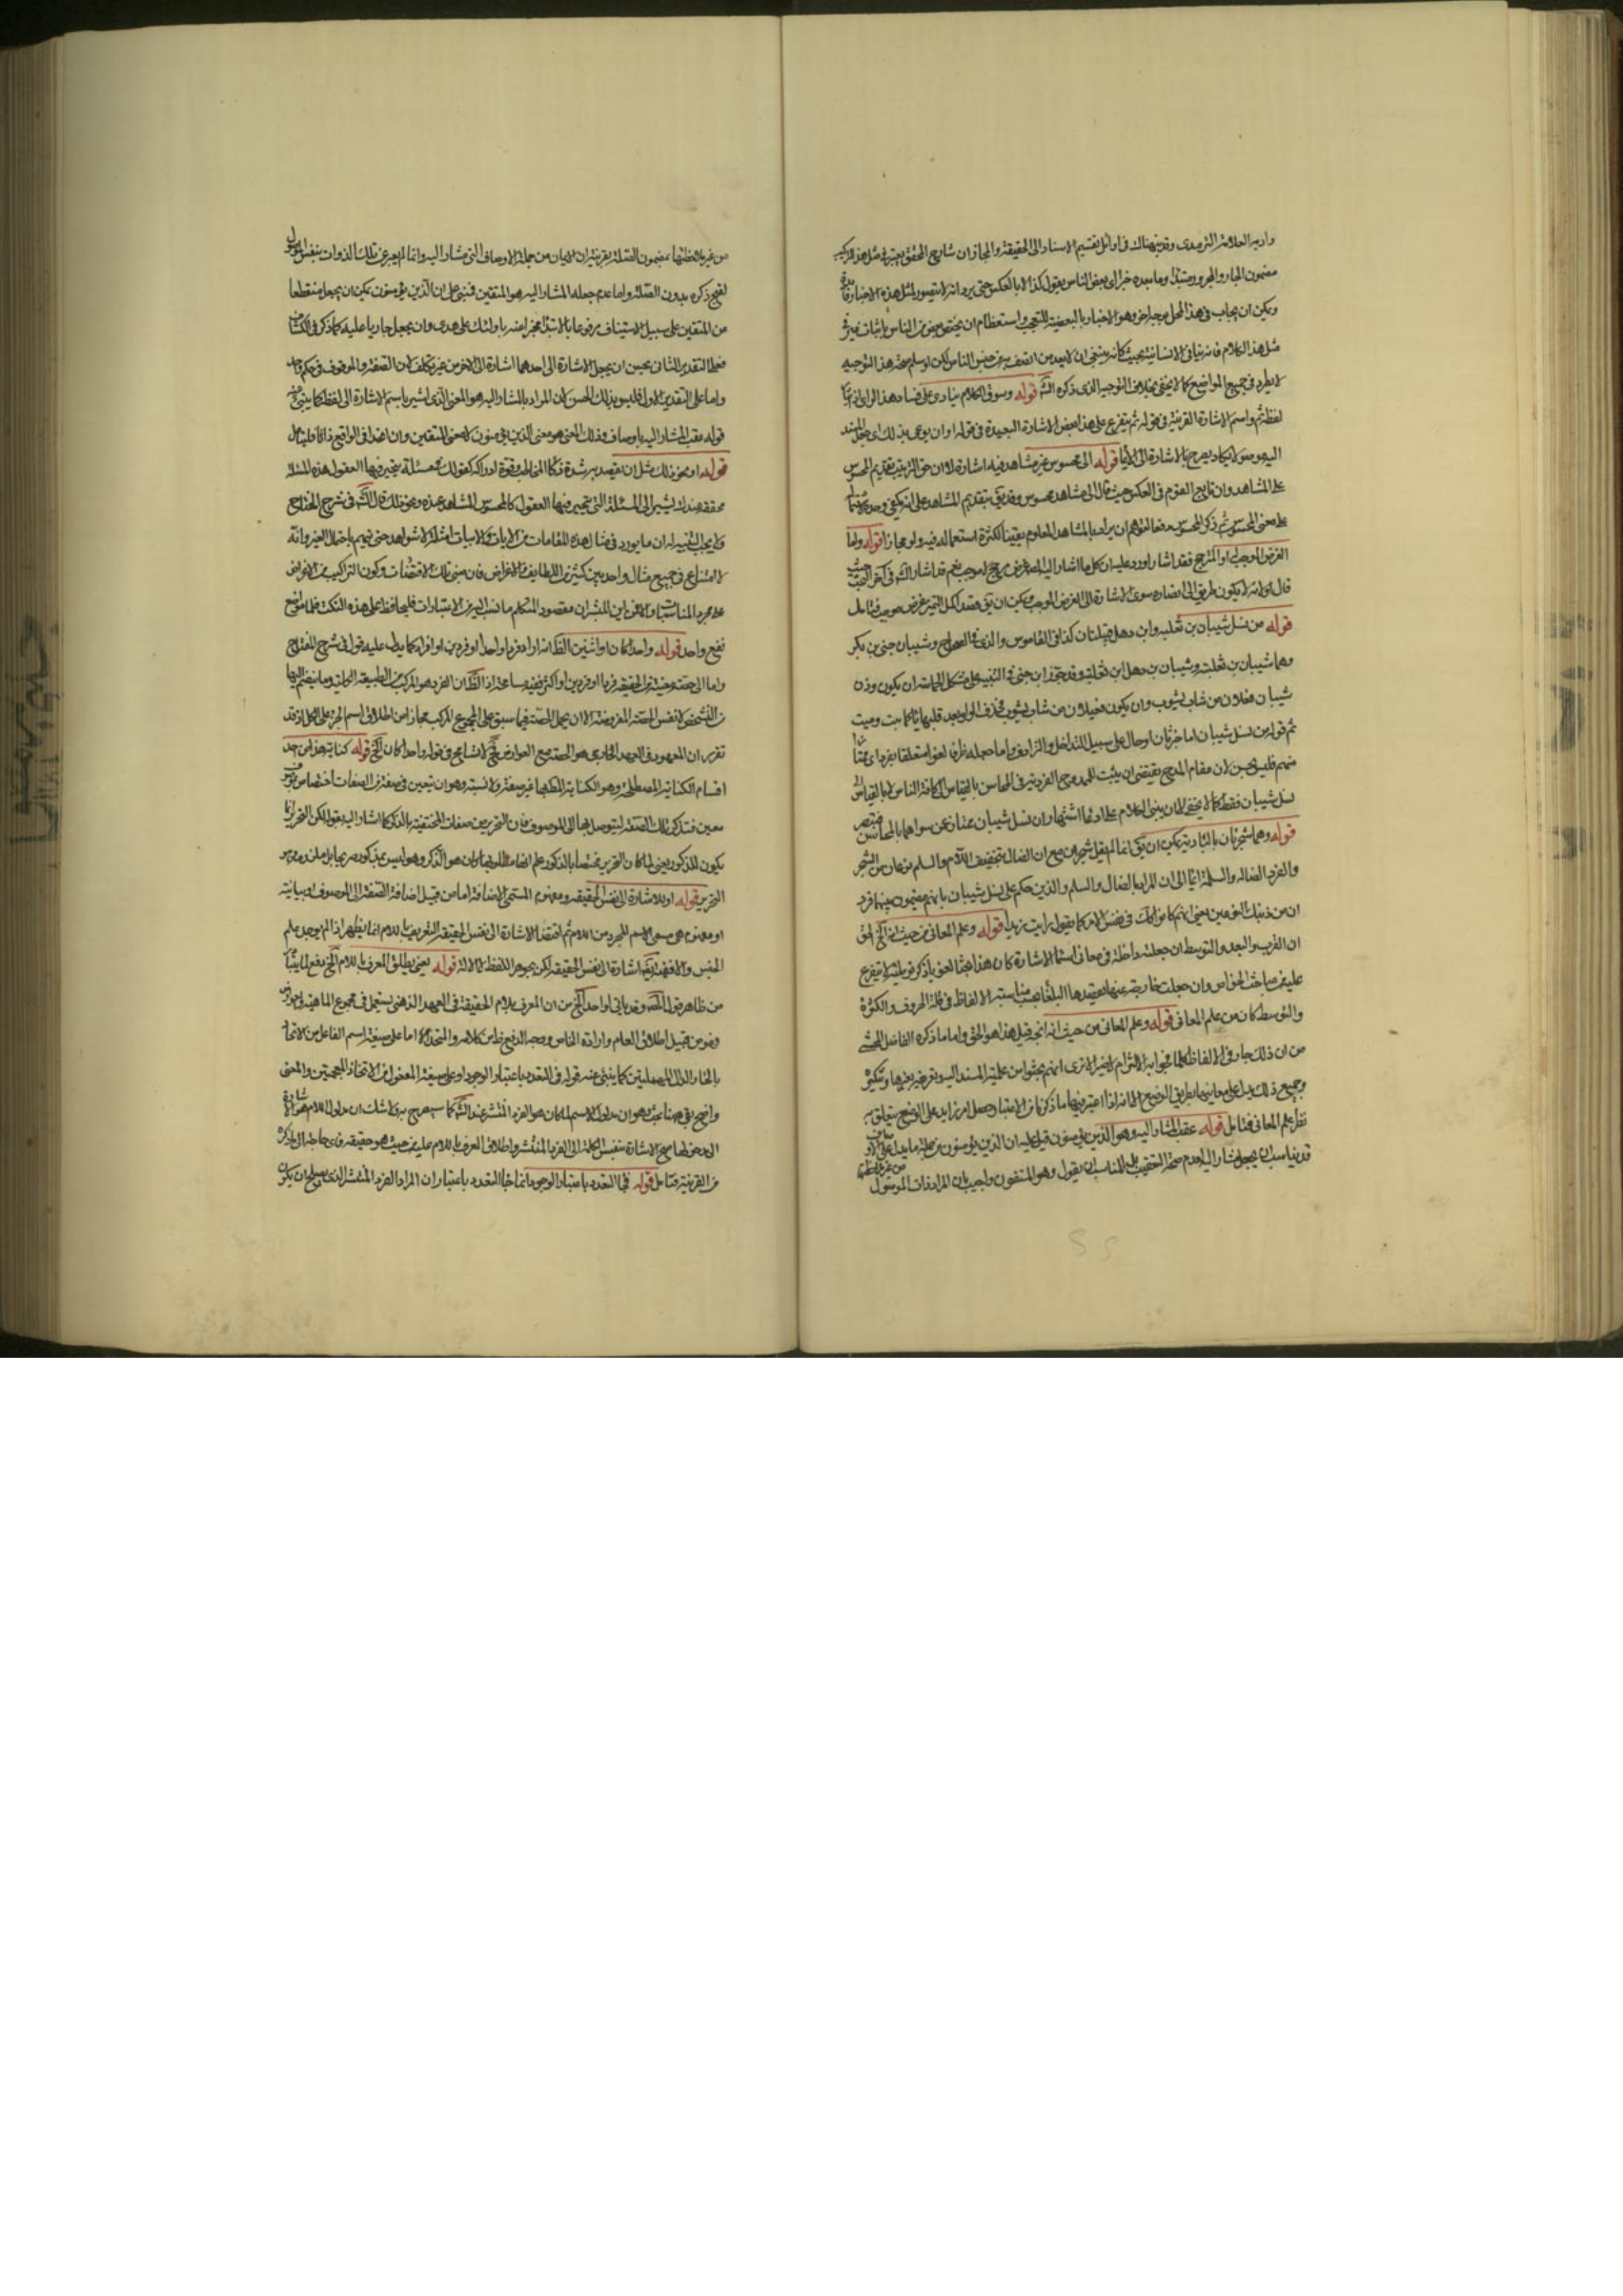 واديه العلامة الترمدى وقد بيناه هناك فى اوائل تقسيم الاسناد الى الحقيقة والمجاز ان شارح المحقق يعتبر فى مثل هذا التركيب
مضمون الجار والمجرور مبتدأ وما بعده خبرا اى بعض الناس يقول كذا لا بالعكس حتى يرد انه لا يتصور لمثل هذه الاخبار فائدة
ويمكن ان يجاب فى هذا المحل بوجه اخر وهو الاخبار بالبعضية للتعجب واستعظام ان يختص بعض من الناس باثبات
مثل هذا الكلام فانه ينافى الانسانية بحيث كانه ينبغى ان لا يعد من اتصف به من جنس الناس لكن لو سلم صحة هذا التوجيه
لا يطرد فى جميع المواضع كما لا يخفى بخلاف التوجيه الذى ذكره الش قوله وسوق الكلام ينادى على فساد هذا الراى
لفظ ثم واسم الاشارة القريبة فى قوله ثم يتفرع على هذا بعض الاشارة البعيدة فى قوله او ان يومى بذلك اى جعل المسند
اليه موصولا يكاد يصرح بالاشارة الى الايماء قوله الى محسوس غير مشاهد فيه اشارة الى ان حق الترتيب تقديم المحسوس
على المشاهد وان تابع القوم فى العكس حيث قال الى مشاهد محسوس وقد يق بتقديم المشاهد على انه يكفى وحده
على معنى المحسوس ثم ذكر المحسوس دفعا لتوهم ان يراد بالمشاهد المعلوم يقينا لكثرة استعماله فيه ولو مجازا قوله ولما
الغرض الموجب له او المرجح فقد اشار اورد عليه ان كل ما اشار اليه المص غرض مرجح لا موجب نعم قد اشار الش فى آخر البحث حيث
قال اولا انه لا يكون طريق الى احضاره سوى الاشارة الى الغرض الموجب ويمكن ان يق قصد اكمل التمييز غرض موجب فتامل
قوله من نسل شيبان بن ثعلبه وابن ذهل قبيلتان كذا فى القاموس والذى فى الصحاح وشيبان حى من بكر
وهما شيبان بن ثعلبه وشيبان بن ذهل ابن ثعلبة وقد جوز ابن جنى فى التنبيه على مشكل الحماسة ان يكون وزن
شيبان فعلان من شاب يشوب وان يكون فيعلان من شاب يشوب فحذف الواو بعد قلبها ياء كما بيت وميت
ثم قوله من نسل شيبان اما خبر ثان او حال على سبيل التداخل والترادف واما جعله ظرفا لغوا متعلقا بفردا اى ممتازا
منهم فليس بحسن لان مقام المدح يقتضى ان يثبت للممدوح الفردية فى المحاسن بالقياس الى كافة الناس لا بالقياس الى
نسل شيبان فقط كما لا يخفى الا ان يبنى الكلام على ادعاء اشتهار ان نسل شيبان ممتاز عمن سواهما بالمحاسن
قوله وهما شجرتان بالبادية يمكن ان يق انما لم يقل شجران مع ان الضال بتخفيف اللام والسلم نوعان من الشجر
والفرد الضاله والسلمة ايماء الى ان المراد بالضال والسلم والذين حكم على نسل شيبان بانهم مقيمون بينهما فرد
ان من ذينك النوعين يعنى انهم كانوا كك فى نفس الامر كما يقول رايت زيدا قوله وعلم المعانى من حيث انه الخ لحق
ان القرب والبعد والتوسط ان جعلت داخلة فى معانى اسماء الاشارة كان هذا بحثا لغويا ذكر توطئة لما يتفرع
عليه من مباحث الخواص وان جعلت خارجة عنها يقصدها البلغاء بحسب مناسبة الالفاظ فى قلة الحروف والكثرة
والتوسط كان من علم المعانى قوله وعلم المعانى من حيث انه الخ قيل هذا هو الحق واما ما ذكره الفاضل المحشى
من ان ذلك جار فى الالفاظ كلها فجوابه الالتزام لا ضير الا ترى انهم بحثوا عن علمية المسند اليه وتعريفه بغيرها وتنكيره
وجميع ذلك يدل على معانيها بطريق الوضع الا انه اذا اعتبر فيها ما ذكرنا من الاعتبار وحصل امر زايد على الوضع يتعلق به
نظر علم المعانى فتامل قوله عقب المشار اليه وهو الذين يؤمنون قيل عليه ان الذين يؤمنون من جملة ما يدل على الاوصاف
قد يناسب ان يجعل مشارا اليه لعدم صحة التعقيب بل المناسب ان يقول وهو المتقون واجيب بان المراد ذات الموصول
من غير ملاحظتها
من غير ملاحظتها بمضمون الصلة بقرينة ان الايمان من جملة الاوصاف التى مشار اليه وانما لم يعبر عن تلك الذوات بنفس الموصول
لقبح ذكره بدون الصلة واما عدم جعله المشار اليه هو المتقين فبنى على ان الذين يؤمنون يمكن ان يجعل منقطعا
من المتقين على سبيل الاستيناف مرفوعا بالابتداء مخبرا عنه باولئك على هدى وان يجعل جاريا عليه كما ذكر فى الكشاف
فعلى التقدير الثانى يحسن ان يجعل الاشارة الى احدهما اشارة الى الاخر من غير تكلف لان الصفة والموصوف فى حكم
واما على التقدير الاول فليس بذلك الحسن لان المراد بالمشار اليه هو المعنى الذى اشير باسم الاشارة الى لفظه كما ينبئ عنه
قوله عقب المشار اليه باوصاف وذلك المعنى هو معنى الذين يؤمنون لا معنى المتقين وان اتحدا فى الواقع ذاتا فليتأمل
قوله او نحو ذلك مثل ان يقصد به شدة ذكاء المخاطب وقوة ادراكه كقولك لمسئلة يتحير فيها العقول هذه المسئلة
محققة عندك يشير الى المسئلة التى يتحير فيها العقول كالمحسوس المشاهد عنده ونحو ذلك قال الش فى شرح المفتاح
ولا يجب التنبيه له ان ما يورد فى مثل هذه المقامات من الايات والابيات امثلة لا شواهد حتى يتهم باحتمال الغير وانه
لا امتناع فى جميع مثال واحد بين كثير من اللطايف والاغراض فان مبنى تلك الاقتضاءات وكون التراكيب من الاغراض
على مجرد المناسبات والقراين للمشعران مقصود المتكلم ما نسب اليه من الاعتبارات فليحافظ على هذه النكت فلها مواضع
نفع واحد قوله واحدا كان او اثنين الظ انه اراد فردا واحدا او فردين او افرادا كما يدل عليه قوله فى شرح المفتاح
واما الى حصة معينة من الحقيقة فردا او فردين او اكثر ففيه مسامحة اذ الظ ان الفرد هو المركب من الطبيعة الكلية وما ينضم اليها
من التشخص لا نفس الحصة المعروضة الا ان يحمل الحصة فيما سبق على المجموع المركب مجازا من اطلاق اسم الجزء على الكل اذ قد
تقرر ان المعهود فى العهد الخارجى هو الحصة مع العوارض لا تسامح فى قوله واحدا كان الخ قوله كناية هذا من احد
اقسام الكناية المصطلحة وهو الكناية المطلوب بها غير صفة ولا نسبة وهو ان يتعين فى صفة من الصفات اختصاص بموصوف
معين فتذكر تلك الصفة ليتوصل بها الى الموصوف فان التحرير من صفات المختصة بالذكر كما اشار اليه بقوله لكن التحرير انما
يكون للذكور يعنى لما كان التحرير مختصا بالذكور علم انها ما طلبوا بها وان هو الذكر وهو ليس بمذكور صريحا بل ملزومه
التحرير قوله او للاشارة الى نفس الحقيقة ومفهوم المسمى الاضافة اما من قبيل اضافة الصفة الى الموصوف او بيانية
او مفهوم هى مسمى الاسم المجرد من اللام ثم اقتضاء الاشارة الى نفس الحقيقة التعريف باللام انما يظهر اذا لم يوجد علم
الجنس والا ففهم اشارة الى نفس الحقيقة لكن بجوهر اللفظ لا بالالة قوله يعنى يطلق المعرف باللام الخ دفع لما يتبادر
من ظاهر قول المص وقد ياتى لواحد الخ من ان المعرف بلام الحقيقة فى العهد الذهنى يستعمل فى مجموع الماهية
وفرد من قبيل اطلاق العام وارادة الخاص ووجه الدفع ظ من كلامه والمتحد اما على صيغة اسم الفاعل من الاتحاد
بالحاء والدال المهملتين كما ينبئ عنه قوله فى التعدد باعتبار الوجود او على صيغة المفعول من الاتخاذ المعجمتين والمعنى
واضح بقى ههنا بحث وهو ان مدلول الاسم لما كان هو الفرد المنتشر عند الش كما سيصرح به ولا شك ان مدلول اللام هو الاشارة
اليه دخولها صح الاشارة بنفس الكلمة الى الفرد المنتشر واطلاق المعرف باللام عليه من حيث هو حقيقة فاى حاجة الى ما ذكره
من القرينة فتامل قوله فجاء التعدد باعتبار الوجود انما جاء التعدد باعتبار ان المراد الفرد المنتشر الذى يصلح ان يكون